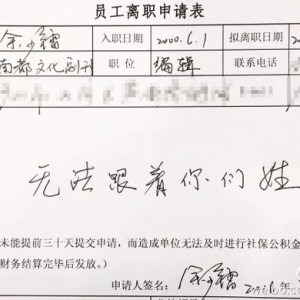 员工离职申请表
余少镭 入职日期 2000.6.1 拟离职日期 2
南都文化副刊 职位 编辑 联系电话
无法跟着你们姓
未能提前三十天提交申请，而造成单位无法及时进行社保公积金
财务结算完毕后发放。）
申请人签名： 余少镭 2016.